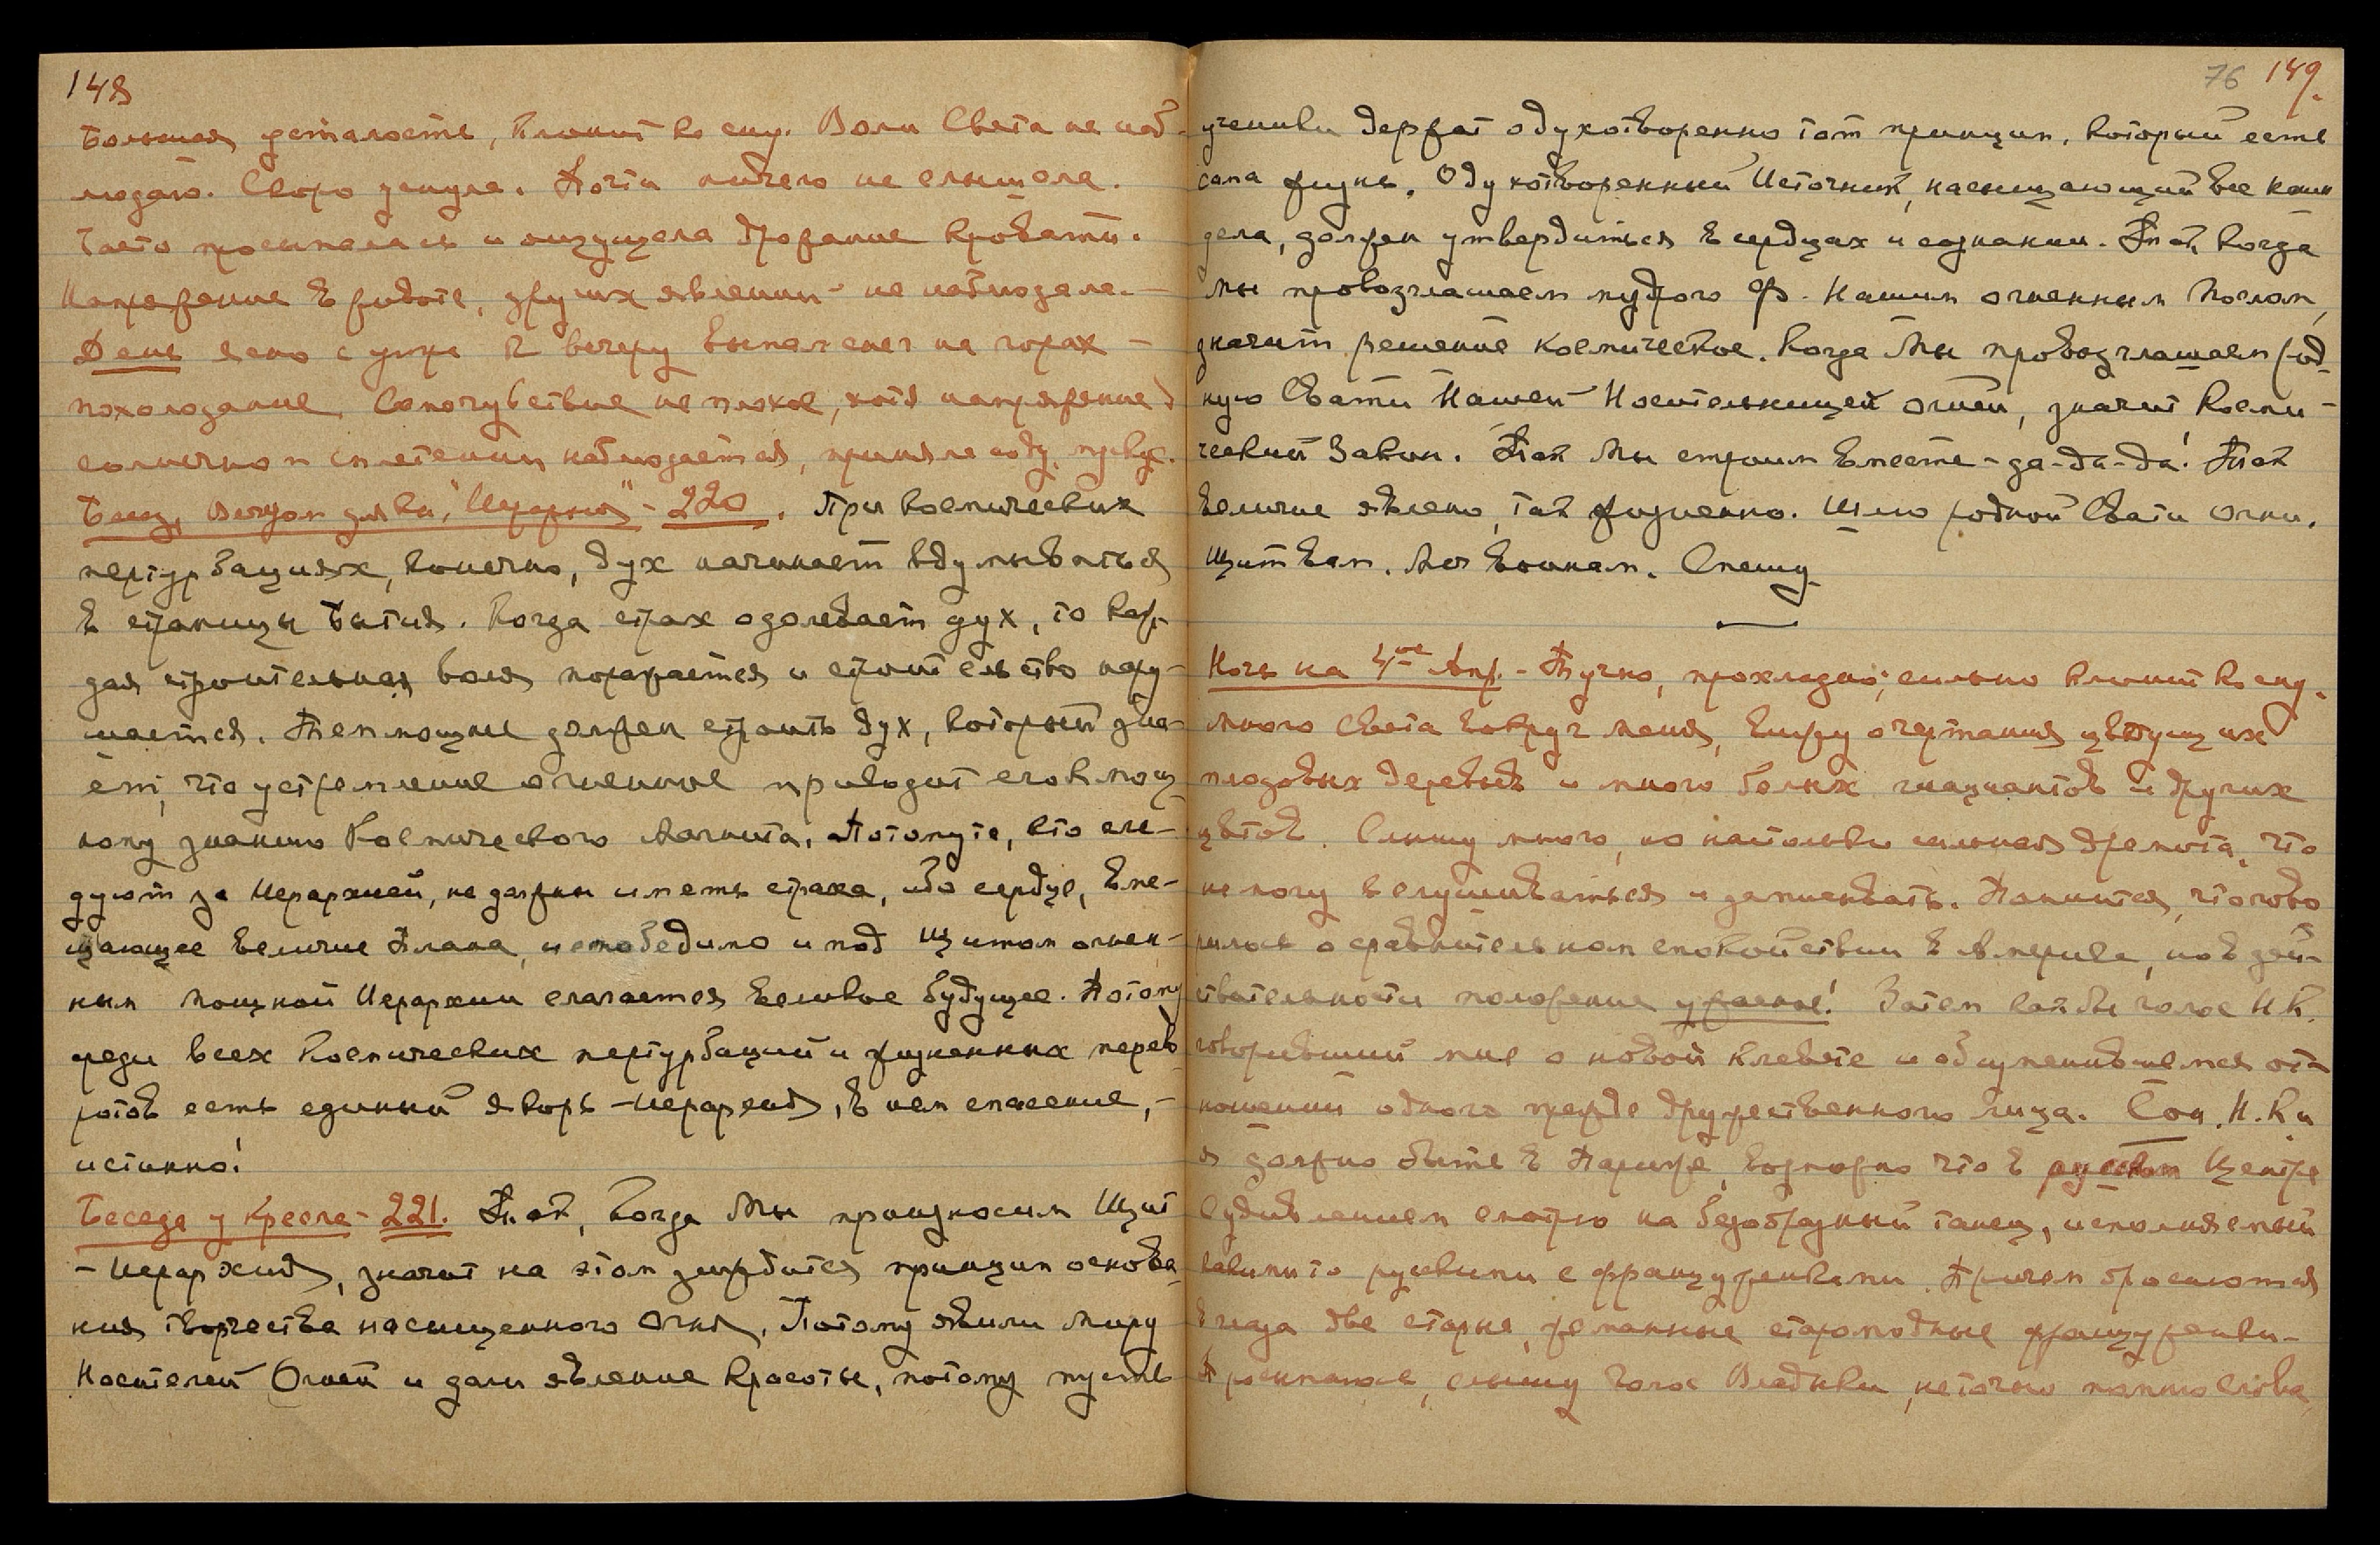 148
Большая усталость, клонит ко сну. Волн Света не наб-
людаю. Скоро уснула. Почти ничего не слышала.
Часто просыпалась и ощущала дрожание кровати.
Напряжение в животе, других явлений не наблюдала.—
День ясно с утра к вечеру выпал снег на горах —
похолодание. Самочувствие не плохое, хотя напряжение в
солнечном сплетении наблюдается, приняла соду,
"Иерархия" - 220. При космических
пертурбациях, конечно, дух начинает вдумываться
в страницы Бытия. Когда страх одолевает дух, то каж-
дая строительная воля поражается и строительство нару-
шается. Темпощнее должен строить дух, который зна-
ет, что устремление огненное приводит его к мощ-
ному знанию Космического Магнита. Потому те, кто сле-
дуют за Иерархией, не должны иметь страха, ибо сердце, вме-
щающее величие Плана, непобедимо и под Щитом огнен-
ным мощной Иерархии слагается великое будущее. Потому
среди всех космических пертурбаций и жизненных перево-
ротов есть единый якорь - Иерархия, в нем спасение, -
истинно!
Беседа у кресла - 221. Так, когда Мы произносим Щит
- Иерархия, значит на этом зиждится принцип основа-
ния творчества насыщенного Огня. Потому явили миру
Носителей Огней и дали явление Красоты, потому пусть
76 149.
ученики держат одухотворенно тот принцип, который есть
сама жизнь. Одухотворенный Источник, насыщающий все наши
дела, должен утвердиться в сердцах и сознании. Так, когда
мы провозглашаем мудрого Ф. Нашим огненным Послом,
значит решение космическое. Когда Мы провозглашаем род-
ную Свати Нашей Носительницей огней, значит, Косми-
ческий Закон. Так Мы строим вместе - да-да-да! Так
величие явлено, так жизненно. Шлю родной Свати огни.
Щит вам. Меч воинам. Спешу.
Ночь на 4-ое Апр. - Тучно, прохладно; сильно клонит ко сну.
Много Света вокруг меня, вижу очертания цветущих
плодовых деревьев и много белых гиацинтов и других
цветов. Слышу много, но настолько сильная дремота, что
не могу вслушиваться и записывать. Помнится, что гово-
рилось о сравнительном спокойствии в Америке, но в дей-
ствительности положение ужасное! Затем как бы голос Н.К.
говоривший мне о новой клевете и об изменившемся от-
ношении одного прежде дружественного лица. Сон. Н.К. и
я должно быть в Париже, возможно что в русском Центре
С удивлением смотрю на безобразный танец, исполняемый
какими то русскими с француженками. Причем бросаются
в глаза две старые, жеманные старомодные француженки. -
Просыпаюсь, слышу голос Владыки, не точно помню слова,